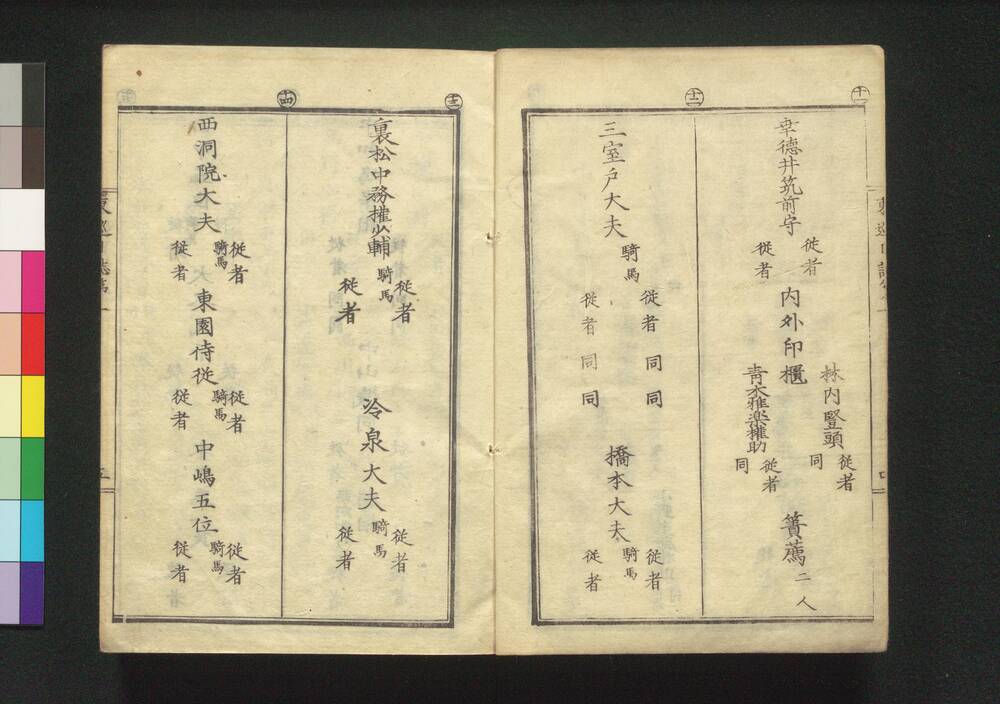 十一
幸德井筑前守
従者
従者
内外印櫃
林内豎頭
従者
同
青木雅楽権助
従者
同
簀薦二人
十二
三室戸大夫
騎馬
従者同同
従者同同
橋本大夫
騎馬
従者
従者
十三
裏松中務権少輔
騎馬
従者
従者
冷泉大夫
騎馬
従者
従者
十四
西洞院大夫
騎馬
従者
従者
東園侍従
騎馬
従者
従者
中嶋五位
騎馬
従者
従者